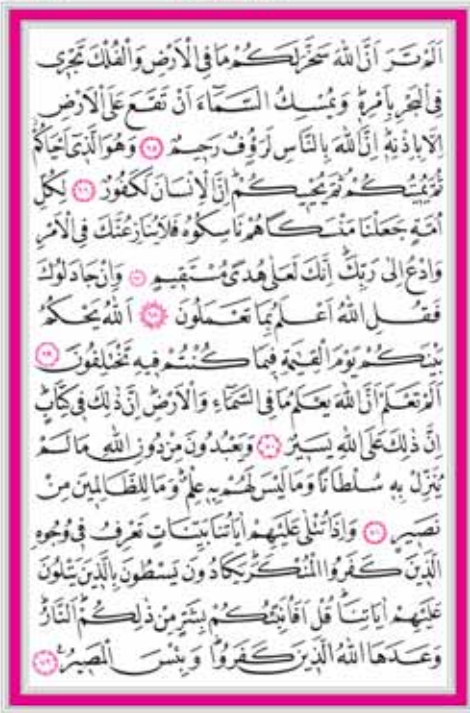 اَلَمْ تَرَ اَنَّ اللّٰهَ سَخَّرَ لَكُمْ مَا فِي الْاَرْضِ وَالْفُلْكَ تَجْرٖي
فِي الْبَحْرِ بِاَمْرِهٖ وَيُمْسِكُ السَّمَٓاءَ اَنْ تَقَعَ عَلَى الْاَرْضِ
اِلَّا بِاِذْنِهٖ اِنَّ اللّٰهَ بِالنَّاسِ لَرَؤُ۫فٌ رَحٖيمٌ ﴿٦٥﴾ وَهُوَ الَّذٖٓي اَحْيَاكُمْ
ثُمَّ يُمٖيتُكُمْ ثُمَّ يُحْيٖيكُمْ اِنَّ الْاِنْسَانَ لَكَفُورٌ ﴿٦٦﴾ لِكُلِّ
اُمَّةٍ جَعَلْنَا مَنْسَكاً هُمْ نَاسِكُوهُ فَلَا يُنَازِعُنَّكَ فِي الْاَمْرِ
وَادْعُ اِلٰى رَبِّكَ اِنَّكَ لَعَلٰى هُدًى مُسْتَقٖيمٍ ﴿٦٧﴾ وَاِنْ جَادَلُوكَ
فَقُلِ اللّٰهُ اَعْلَمُ بِمَا تَعْمَلُونَ ﴿٦٨﴾ اَللّٰهُ يَحْكُمُ
بَيْنَكُمْ يَوْمَ الْقِيٰمَةِ فٖيمَا كُنْتُمْ فٖيهِ تَخْتَلِفُونَ ﴿٦٩﴾
اَلَمْ تَعْلَمْ اَنَّ اللّٰهَ يَعْلَمُ مَا فِي السَّمَٓاءِ وَالْاَرْضِ اِنَّ ذٰلِكَ فٖي كِتَابٍ
اِنَّ ذٰلِكَ عَلَى اللّٰهِ يَسٖيرٌ ﴿٧٠﴾ وَيَعْبُدُونَ مِنْ دُونِ اللّٰهِ مَا لَمْ
يُنَزِّلْ بِهٖ سُلْطَاناً وَمَا لَيْسَ لَهُمْ بِهٖ عِلْمٌ وَمَا لِلظَّالِمٖينَ مِنْ
نَصٖيرٍ ﴿٧١﴾ وَاِذَا تُتْلٰى عَلَيْهِمْ اٰيَاتُنَا بَيِّنَاتٍ تَعْرِفُ فٖي وُجُوهِ
الَّذٖينَ كَفَرُوا الْمُنْكَرَ يَكَادُونَ يَسْطُونَ بِالَّذٖينَ يَتْلُونَ
عَلَيْهِمْ اٰيَاتِنَا قُلْ اَفَاُنَبِّئُكُمْ بِشَرٍّ مِنْ ذٰلِكُمْ اَلنَّارُ
وَعَدَهَا اللّٰهُ الَّذٖينَ كَفَرُوا وَبِئْسَ الْمَصٖيرُ ﴿٧٢﴾